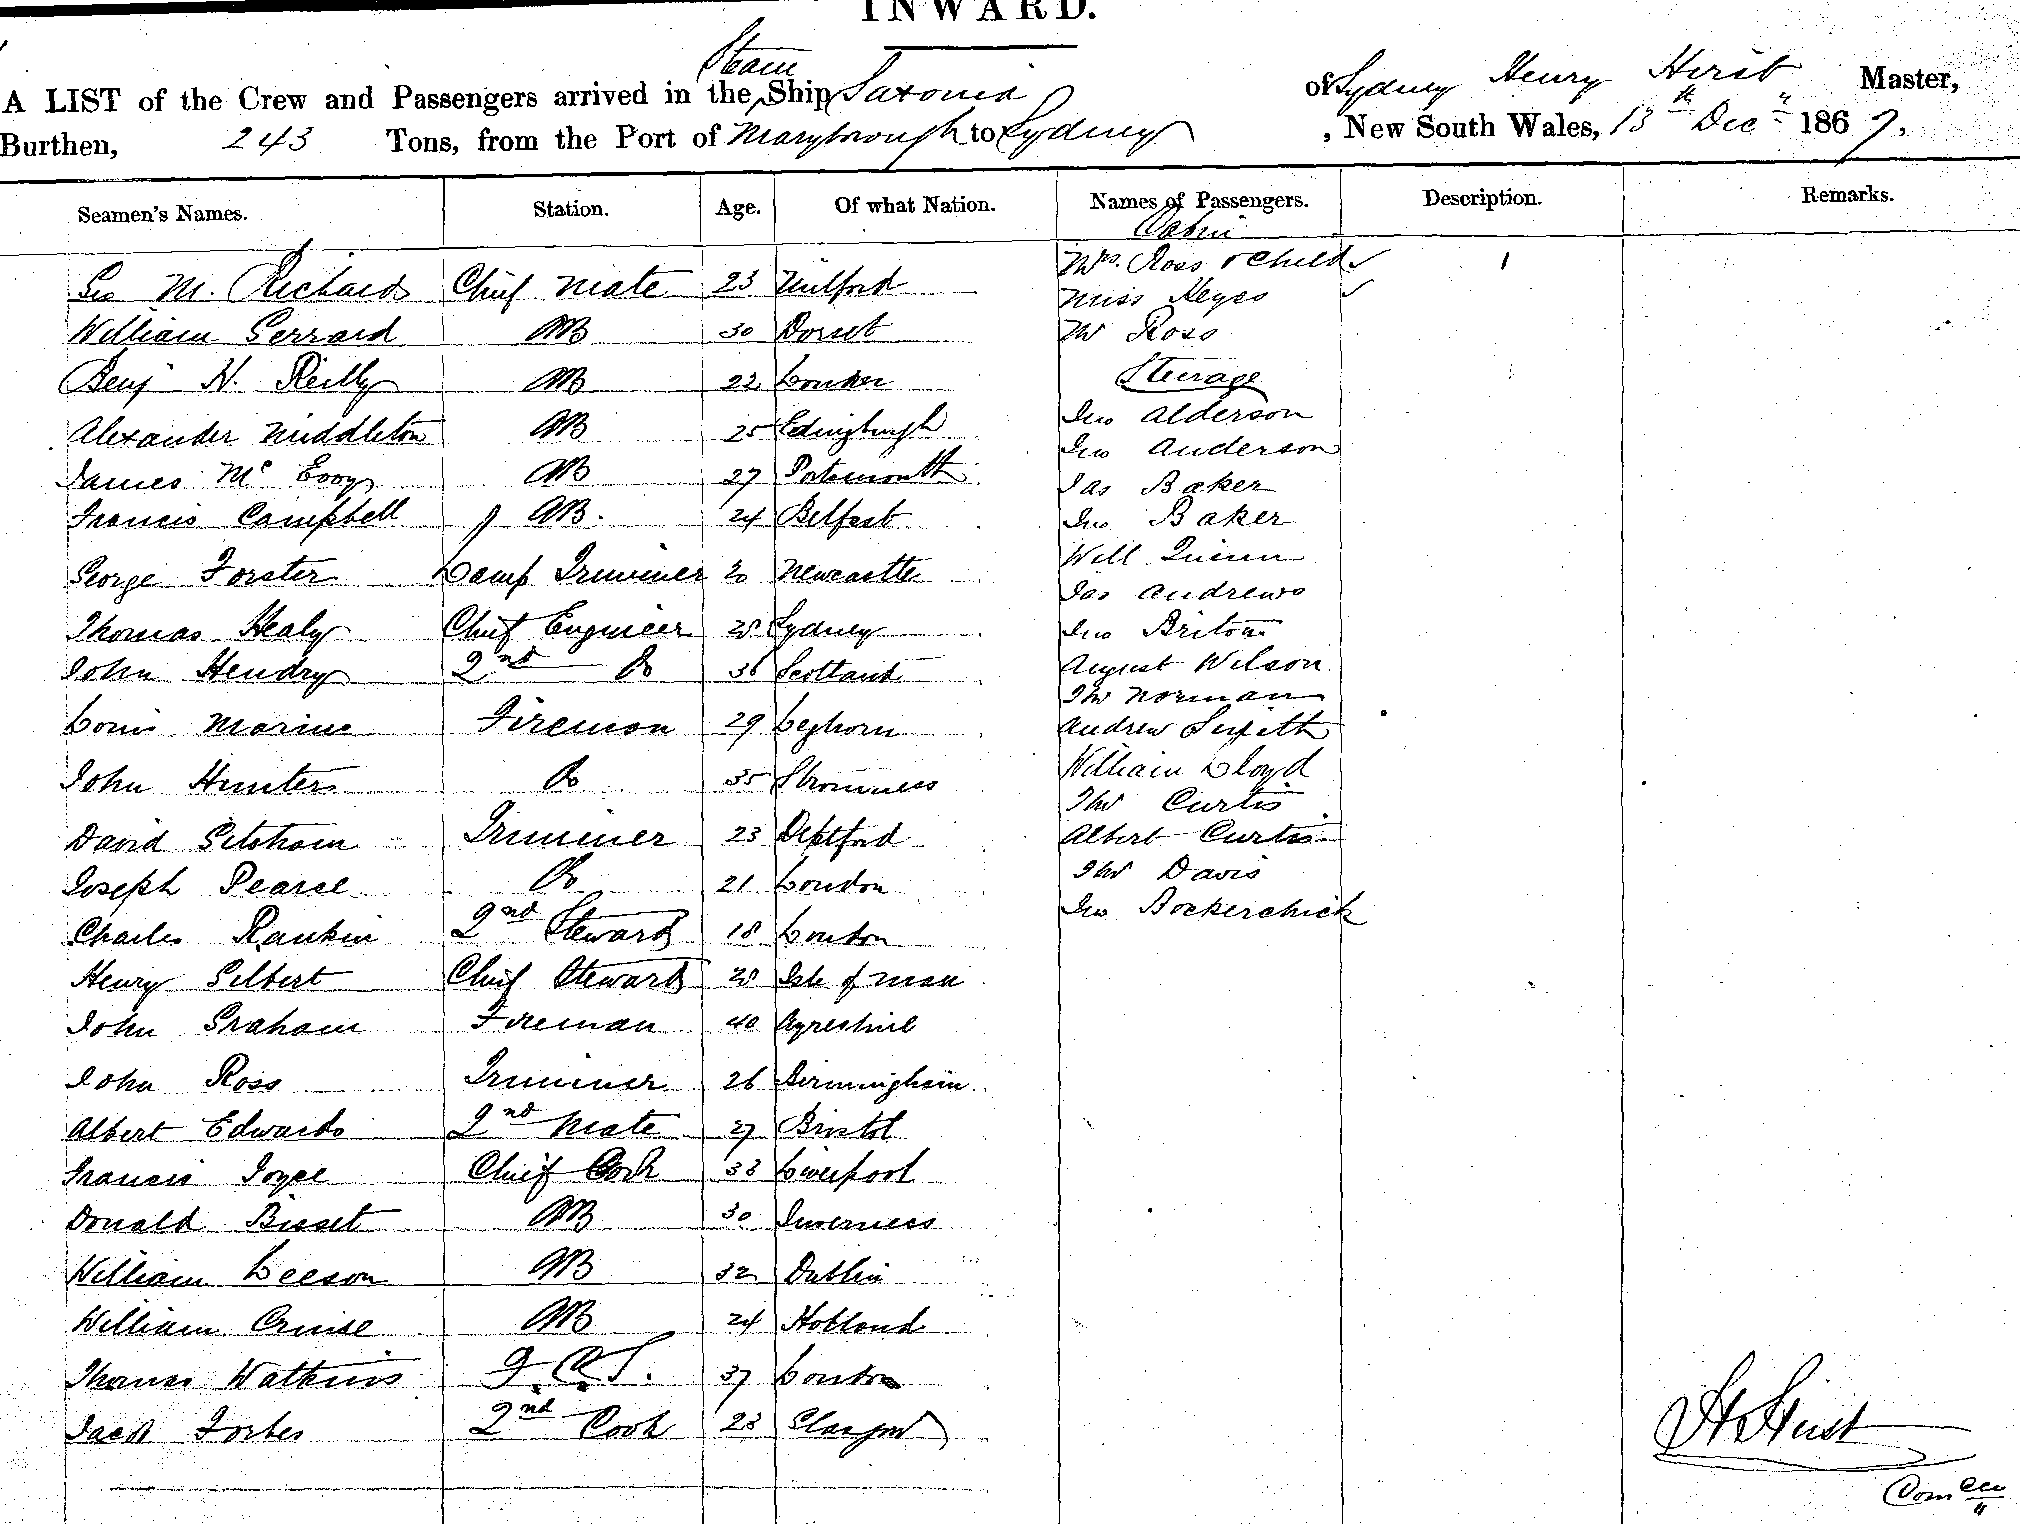 INWARD.
A LIST of the Crew and Passengers arrived in the Steam Ship Saxonia of Sydney Henry Hirst Master,
Burthen, 243 Tons, from the Port of Maryborough to Sydney, New South Wales, 13th Decr 1867.
Seamen's Names. Station. Age. Of what Nation. Names of Passengers. Description. Remarks.
Cabin
Geo M. Richards Chief Mate 23 Milford Mrs. Ross & Child 1
Miss Keyes
William Gerrard AB 30 Dorset Mr Ross
Benj H. Reilly AB 22 London Steerage
Alexander Middleton AB 25 Edingburgh Jno Alderson
Jno Anderson
James Mc Evoy AB 27 Portsmouth Jas Baker
Francis Campbell AB. 24 Belfast Jno Baker
Will Quinn
George Forster Lamp Trimmer 20 Newcastle Jas Andrews
Thomas Healy Chief Engineer 28 Sydney Jno Briton
John Hendry 2nd Do 36 Scotland August Wilson
Tho Norman
Louis Marine Fireman 29 Leghorn Andrew
John Hunter Do 35 Stromness William Lloyd
Tho Curtis
David Trimmer 23 Deptford Albert Curtis
Joseph Pearce Do 21 London Tho Davis
Charles Rankin 2nd Steward 18 London Jno Bockerchick
Henry Gilbert Chief Steward 28 Isle of Man
John Graham Fireman 40 Ayreshire
John Ross Trimmer 26 Birmingham
Albert Edwards 2nd Mate 27 Bristol
Francis Joyce Chief Cook 33 Liverpool
Donald Bisset AB 30 Inverness
William Leeson AB 32 Dublin
William Cruise AB 24 Holland
Thomas Watkins F.C.S. 37 London
Jacob Forbes 2nd Cook 23 Glasgow
H Hirst
Com